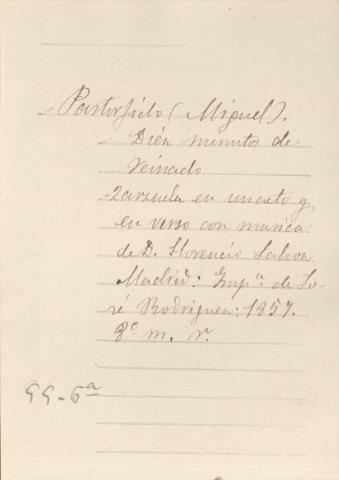 Pastorfido (Miguel).
Dién minutos de
reinado
Zarzuela en un acto y
en verso con musica
de D. Florencio Lahoz
Madrid: Impª. de Jo-
sé Rodriguen: 1857.
8º m. r.
99-6ª